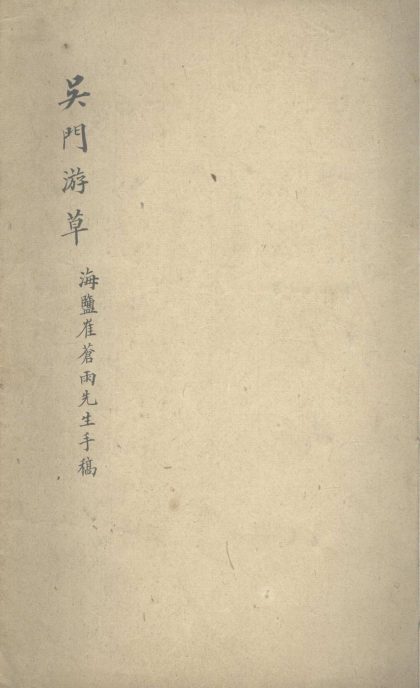 吳門游草
海鹽崔蒼雨先生手稿